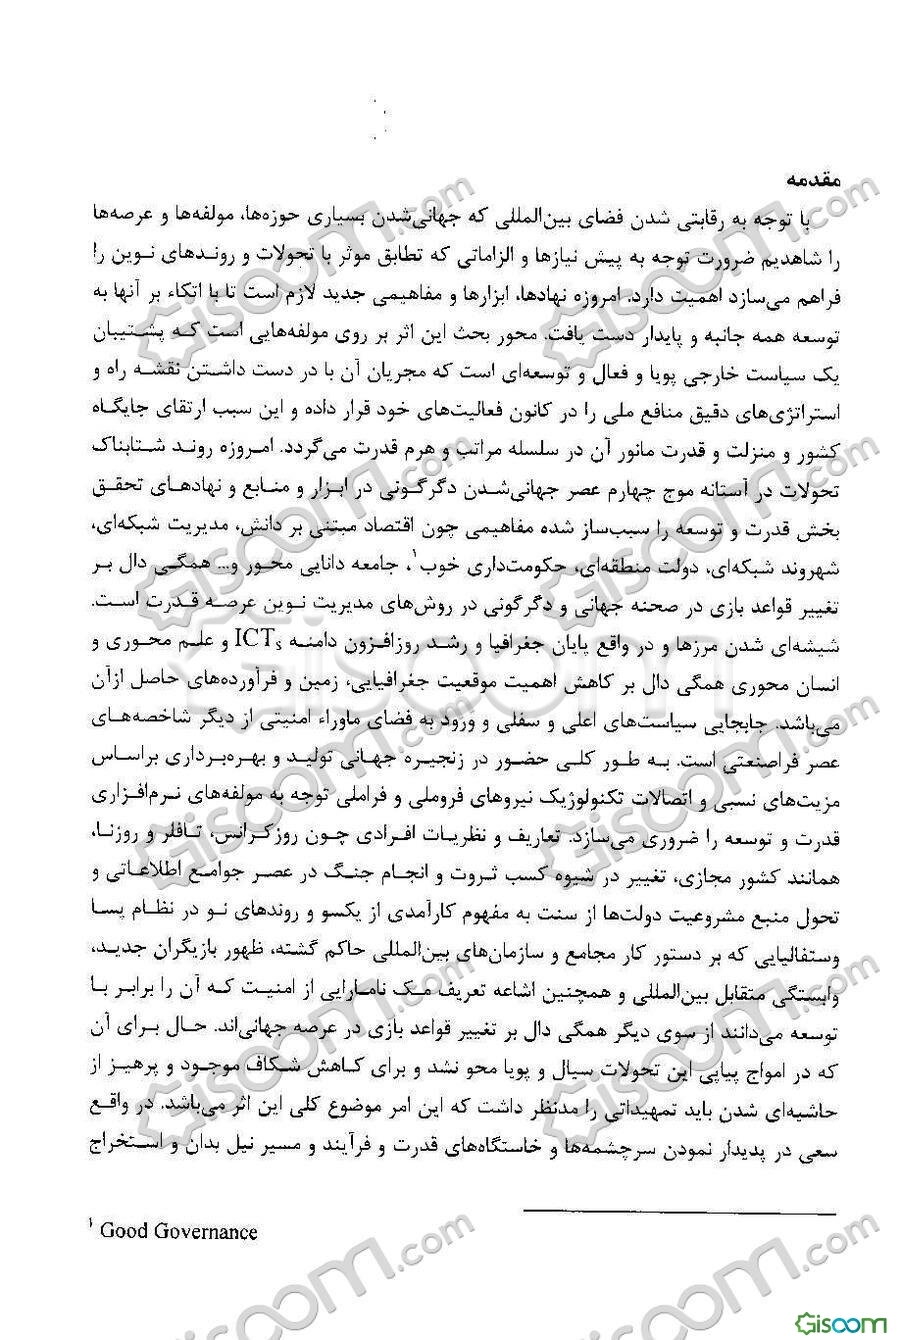 مقدمه
با توجه به رقابتی شدن فضای بین‌المللی که جهانی‌شدن بسیاری حوزه‌ها، مولفه‌ها و عرصه‌ها
را شاهدیم ضرورت توجه به پیش نیازها و الزاماتی که تطابق موثر با تحولات و روندهای نوین را
فراهم می‌سازد اهمیت دارد. امروزه نهادها، ابزارها و مفاهیمی جدید لازم است تا با اتکاء بر آنها به
توسعه همه جانبه و پایدار دست یافت. محور بحث این اثر بر روی مولفه‌هایی است که پشتیبان
یک سیاست خارجی پویا و فعال و توسعه‌ای است که مجریان آن با در دست داشتن نقشه راه و
استراتژی‌های دقیق منافع ملی را در کانون فعالیت‌های خود قرار داده و این سبب ارتقای جایگاه
کشور و منزلت و قدرت مانور آن در سلسله مراتب و هرم قدرت می‌گردد. امروزه روند شتابناک
تحولات در آستانه موج چهارم عصر جهانی‌شدن دگرگونی در ابزار و منابع و نهادهای تحقق
بخش قدرت و توسعه را سبب‌ساز شده مفاهیمی چون اقتصاد مبتنی بر دانش، مدیریت شبکه‌ای،
شهروند شبکه‌ای، دولت منطقه‌ای، حکومت‌داری خوب۱، جامعه دانایی محور و... همگی دال بر
تغییر قواعد بازی در صحنه جهانی و دگرگونی در روش‌های مدیریت نوین عرصه قدرت است.
شیشه‌ای شدن مرزها و در واقع پایان جغرافیا و رشد روزافزون دامنه ICTs و علم محوری و
انسان محوری همگی دال بر کاهش اهمیت موقعیت جغرافیایی، زمین و فرآورده‌های حاصل ازآن
می‌باشد. جابجایی سیاست‌های اعلی و سفلی و ورود به فضای ماوراء امنیتی از دیگر شاخصه‌های
عصر فراصنعتی است. به طور کلی حضور در زنجیره جهانی تولید و بهره‌برداری براساس
مزیت‌های نسبی و اتصالات تکنولوژیک نیروهای فروملی و فراملی توجه به مولفه‌های نرم‌افزاری
قدرت و توسعه را ضروری می‌سازد. تعاریف و نظریات افرادی چون روزکرانس، تافلر و روزنا،
همانند کشور مجازی، تغییر در شیوه کسب ثروت و انجام جنگ در عصر جوامع اطلاعاتی و
تحول منبع مشروعیت دولت‌ها از سنت به مفهوم کارآمدی از یکسو و روندهای نو در نظام پسا
وستفالیایی که بر دستور کار مجامع و سازمان‌های بین‌المللی حاکم گشته، ظهور بازیگران جدید،
وابستگی متقابل بین‌المللی و همچنین اشاعه تعریف مک نامارایی از امنیت که آن را برابر با
توسعه می‌دانند از سوی دیگر همگی دال بر تغییر قواعد بازی در عرصه جهانی‌اند. حال برای آن
که در امواج پیاپی این تحولات سیال و پویا محو نشد و برای کاهش شکاف موجود و پرهیز از
حاشیه‌ای شدن باید تمهیداتی را مدنظر داشت که این امر موضوع کلی این اثر می‌باشد. در واقع
سعی در پدیدار نمودن سرچشمه‌ها و خاستگاه‌های قدرت و فرآیند و مسیر نیل بدان و استخراج
۱ Good Governance
Gisoom